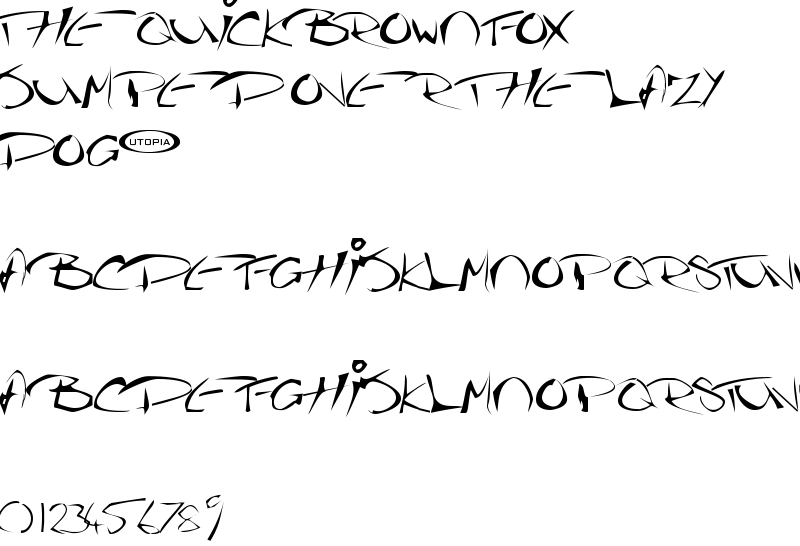 THE QUICK BROWN FOX
JUMPED OVER THE LAZY
DOG UTOPIA
ABCDEFGHIJKLMNOPQRSTUV
ABCDEFGHIJKLMNOPQRSTUV
0123456789